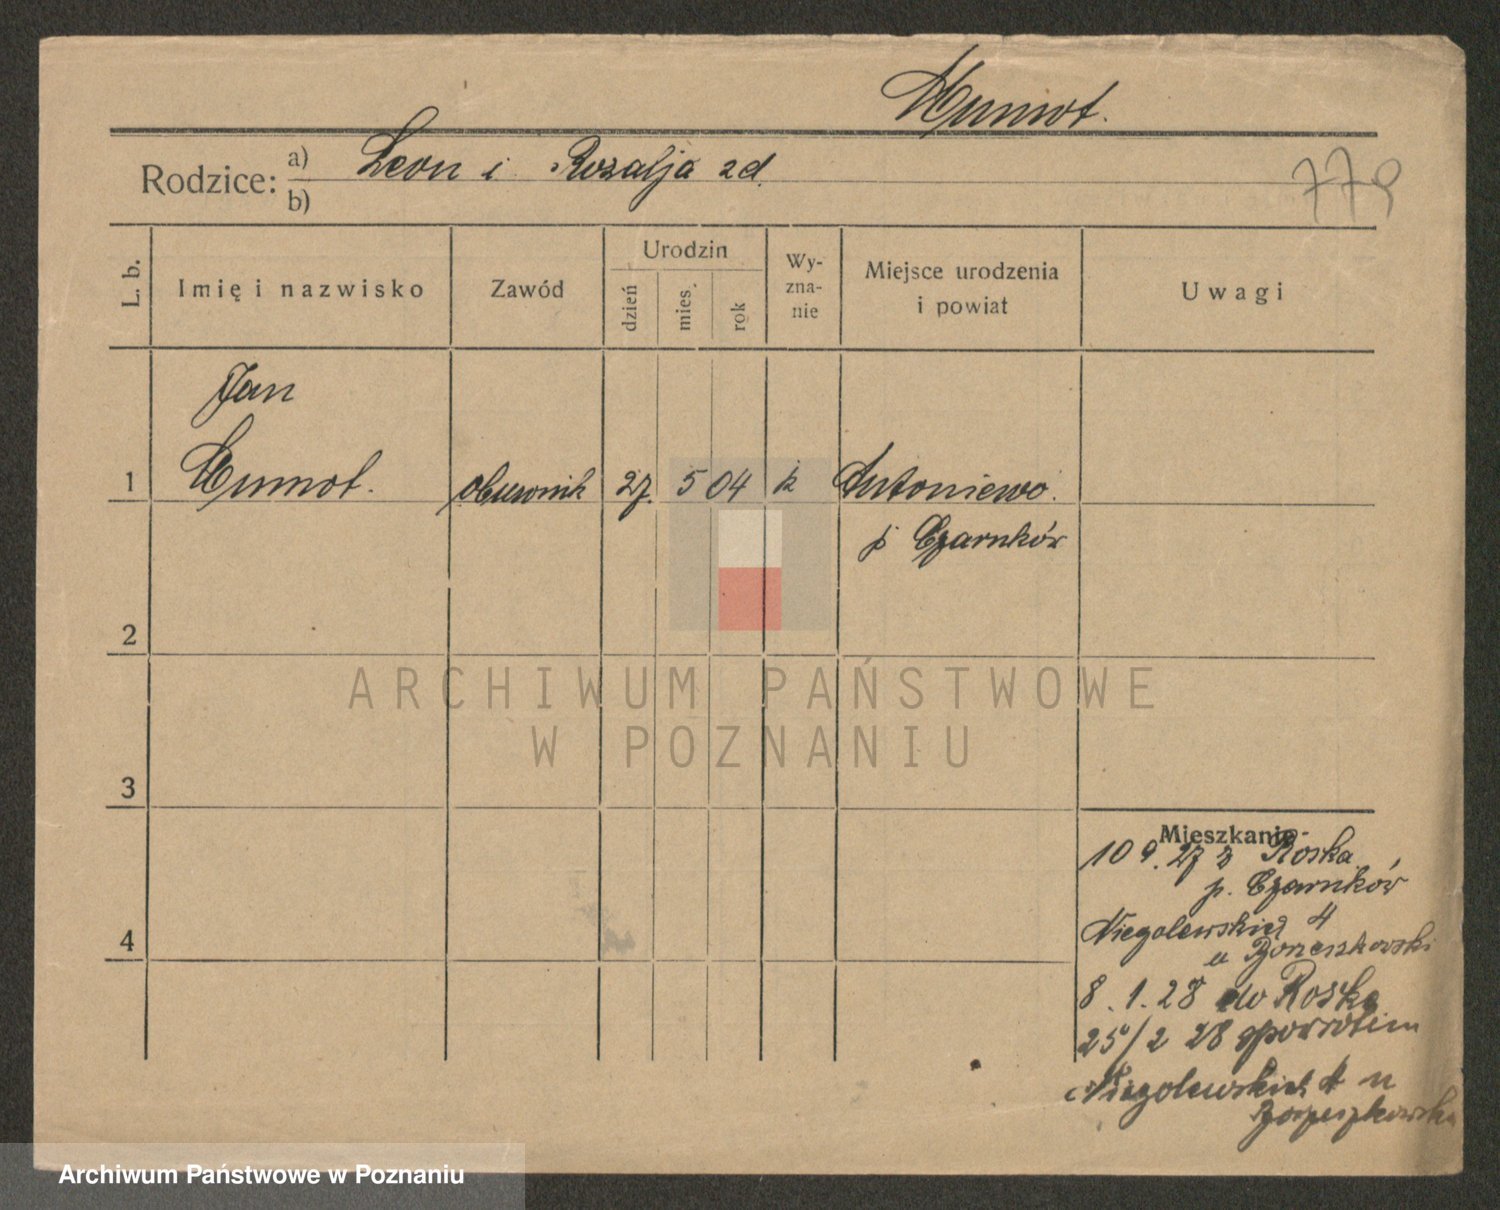 Mumot.
Rodzice: a) Leon i Rozalja zd.
b)
779
L. b.
Imię i nazwisko
Zawód
Urodzin
dzień
mies.
rok
Wy-
zna-
nie
Miejsce urodzenia
i powiat
Uwagi
Jan
1 Mumot. 27. 5 04 k Antoniewo.
p. Czarnków
2
ARCHIWUM PAŃSTWOWE
W POZNANIU
3
Mieszkanie
10 9. 27 z Roska
p. Czarnków
4
Niegolewskich 4
u
8. 1. 28 do Roska
25/2 28 spowrotem
Niegolewskich 4 u
Archiwum Państwowe w Poznaniu